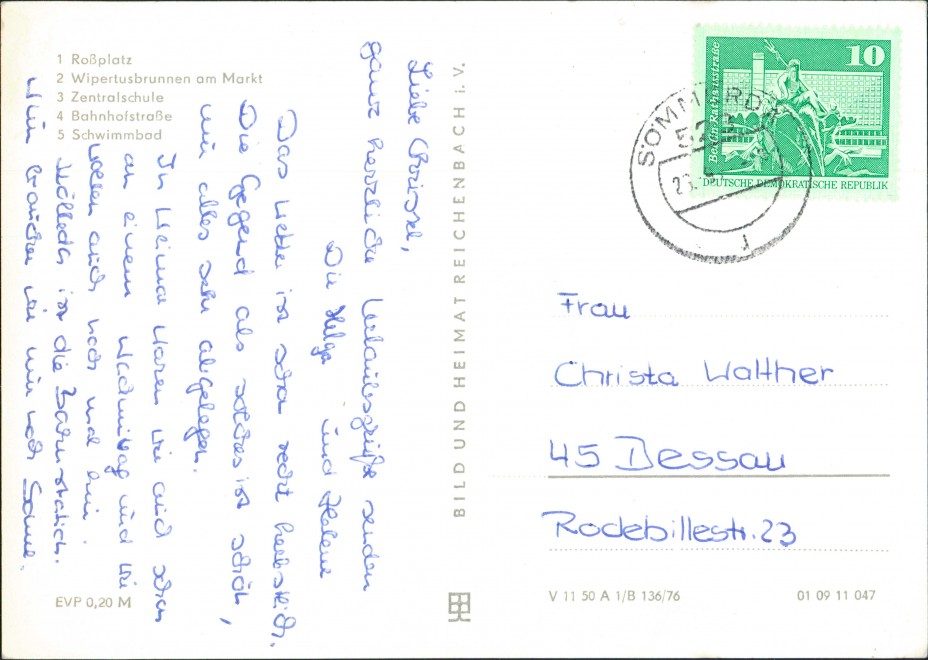 1 Roßplatz
2 Wipertusbrunnen am Markt
3 Zentralschule
4 Bahnhofstraße
5 Schwimmbad
Liebe Christel,
ganz herzliche Urlaubsgrüße senden
Die Helga und Helene
Das Wetter ist schon recht herbstlich.
Die Gegend als solches ist schön,
nur alles sehr abgelegen.
In Weimar waren wir auch schon
an einem Nachmittag und wir
wollen auch noch mal hin.
Kölleda ist die Bahnstation.
Nun brauchen wir nur noch Sonne.
EVP 0,20 M
BILD UND HEIMAT REICHENBACH i. V.
10
Berlin-Rathausstraße
DEUTSCHE DEMOKRATISCHE REPUBLIK
SÖMMERDA
Frau
Christa Walther
45 Dessau
Rodebillestr. 23
V 11 50 A 1/B 136/76
01 09 11 047